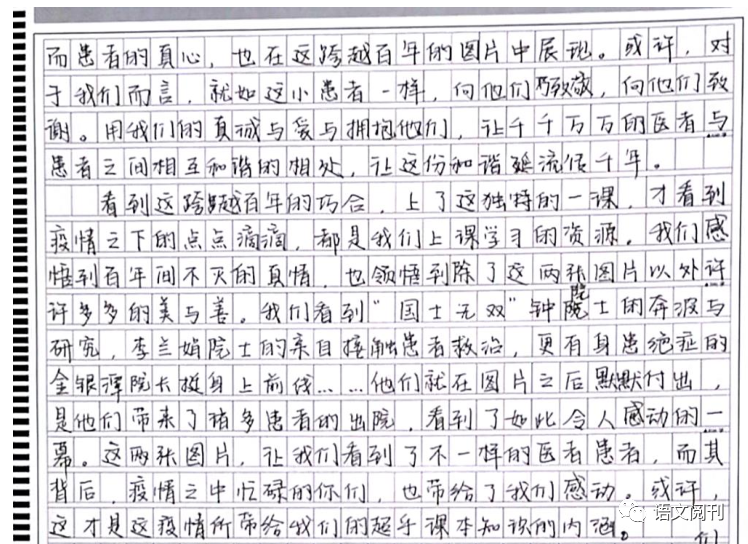 而患者的真心，也在这跨越百年的图片中展现。或许，对
于我们而言，就如这小患者一样，向他们致敬，向他们致
谢。用我们的真诚与爱与拥抱他们，让千千万万的医者与
患者之间相互和谐的相处，让这份和谐延流传千年。
看到这跨越百年的巧合，上了这独特的一课，才看到
疫情之下的点点滴滴，都是我们上课学习的资源。我们感
悟到百年间不灭的真情，也领悟到除了这两张图片以外许
许多多的美与善。我们看到“国士无双”钟院士的奔波与
研究，李兰娟院士的亲自接触患者救治，更有身患绝症的
金银潭院长挺身上前线……他们就在图片之后默默付出，
是他们带来了诸多患者的出院，看到了如此令人感动的一
幕。这两张图片，让我们看到了不一样的医者患者，而其
背后，疫情之中忙碌的你们，也带给了我们感动。或许，
这才是这疫情所带给我们的超乎课本知识的内涵。
们
语文阅刊